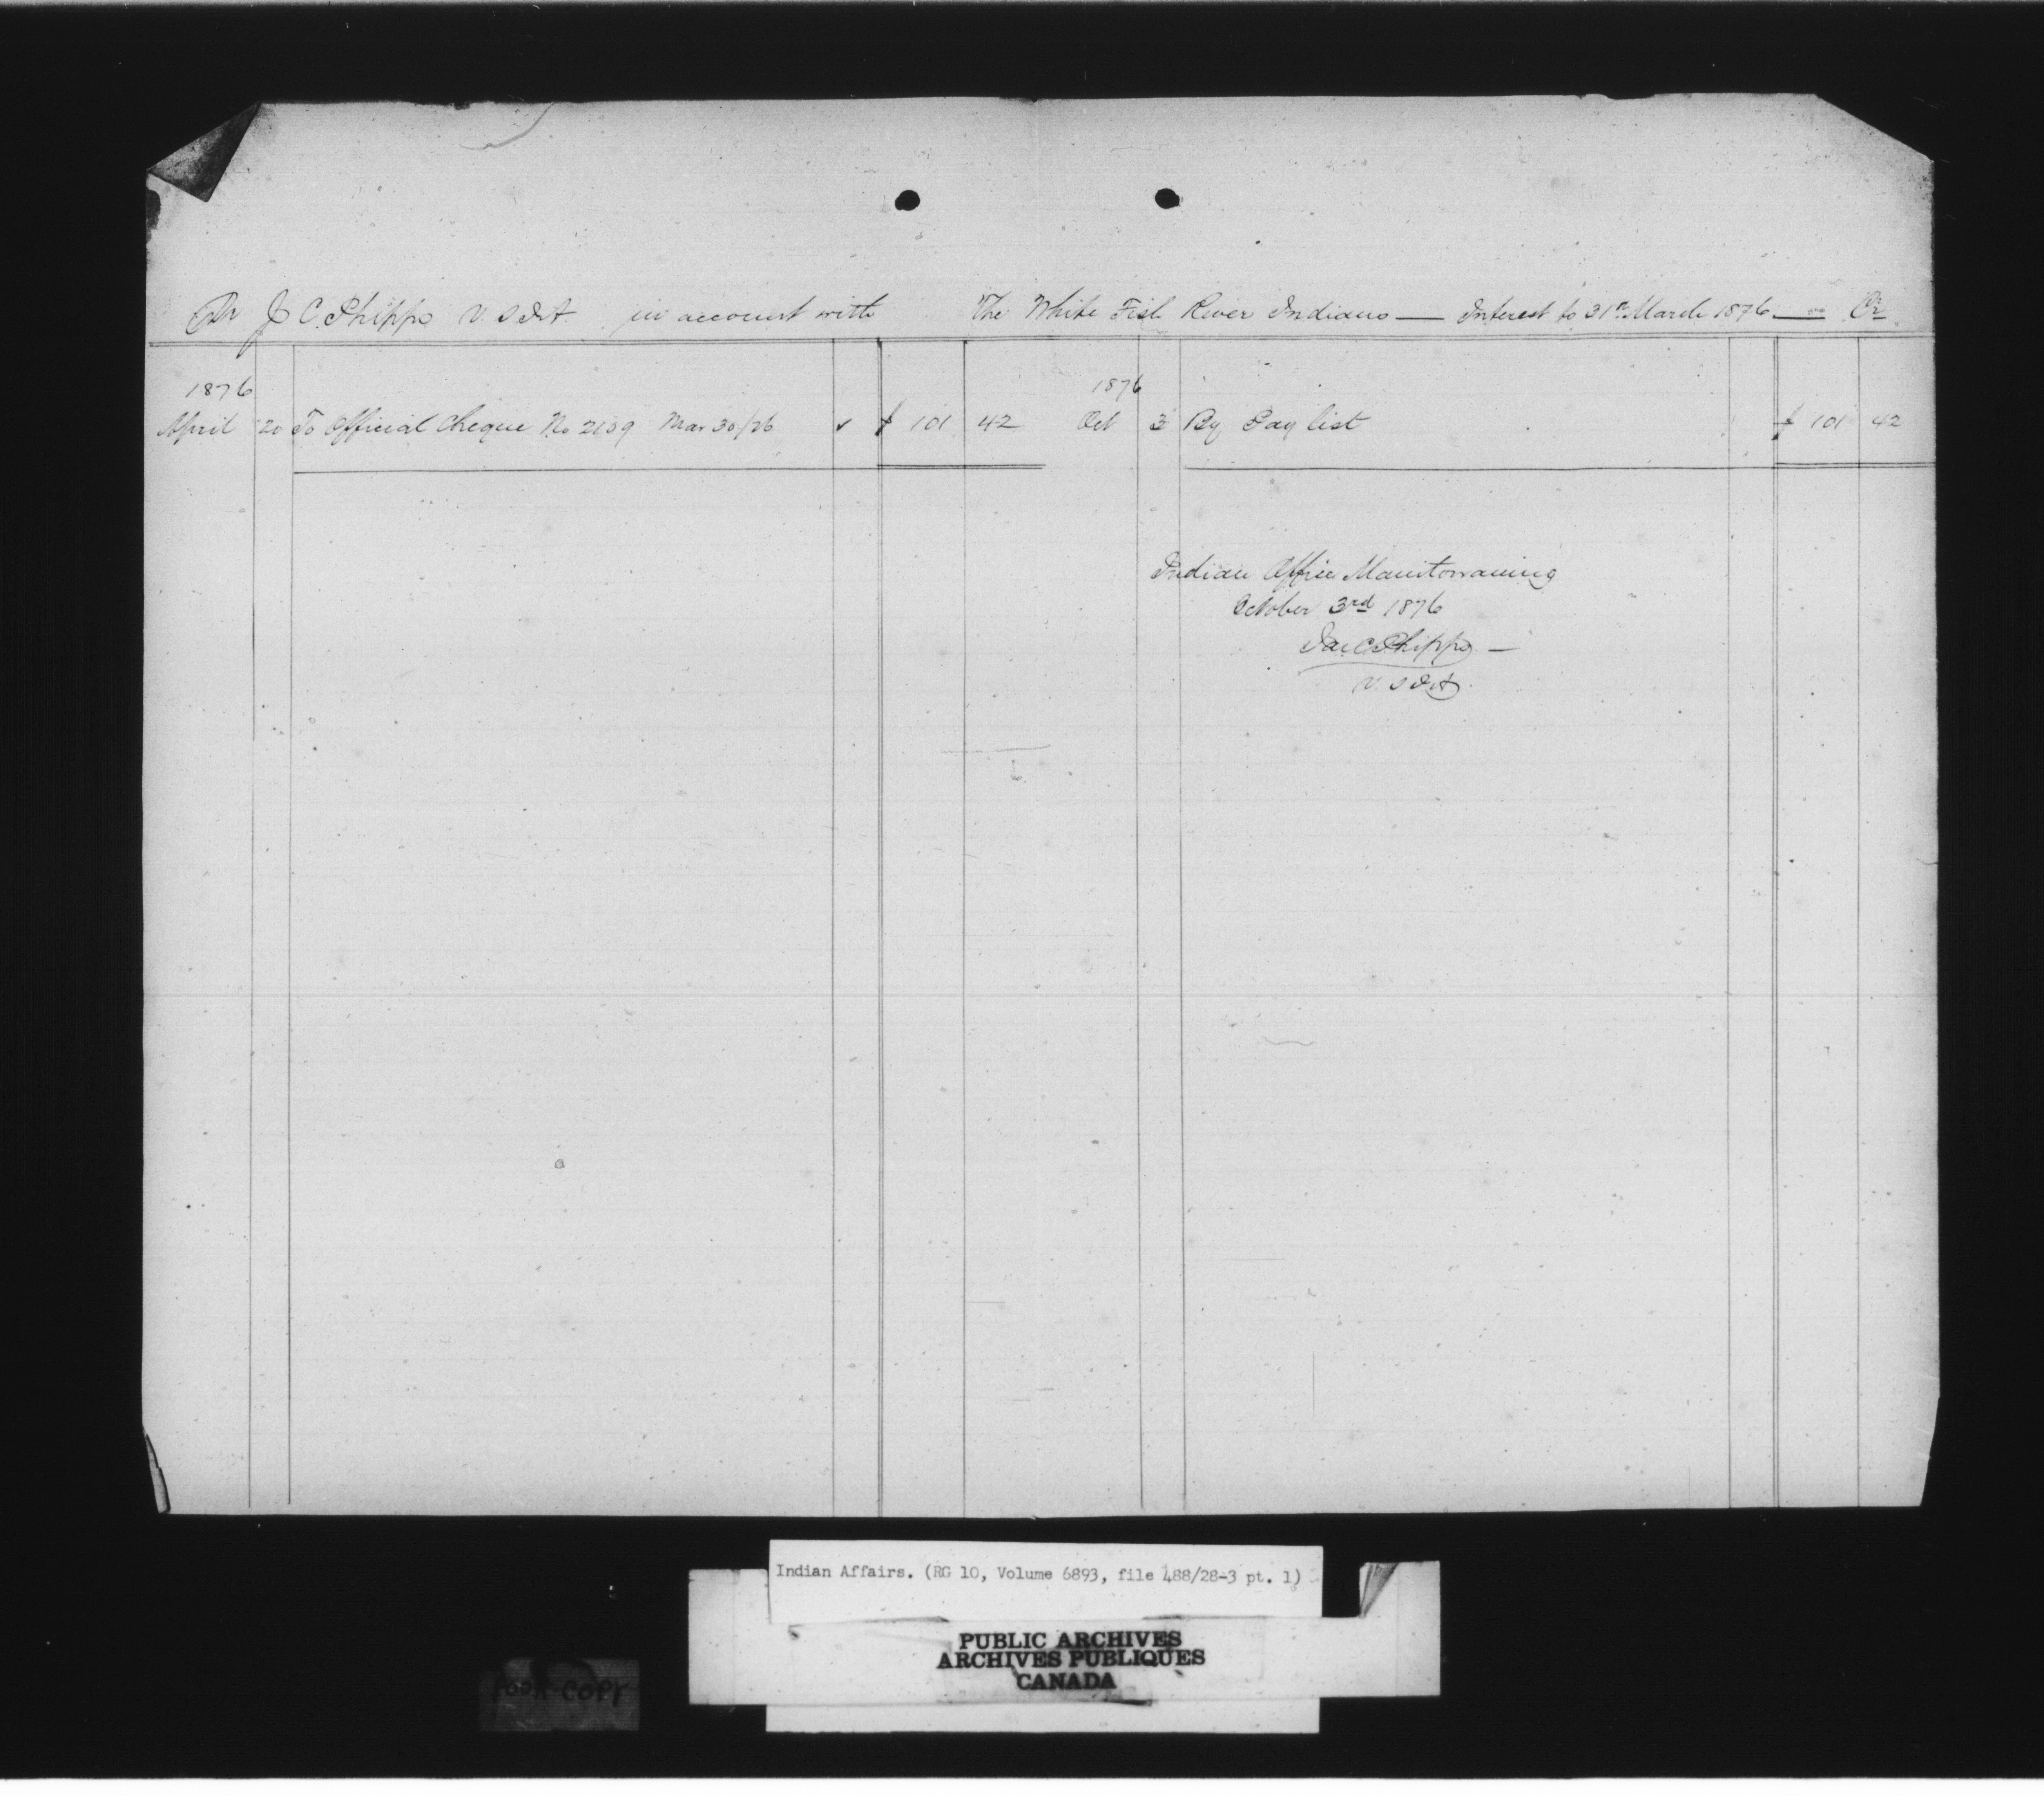 Dr J C. Phipps V. S I A. in account with The White Fish River Indians — Interest to 31st March 1876 — Cr
1876 1876
April 20 To Official Cheque No 2109 Mar 30/76 ✓ $ 101 42 Oct 3 By Pay list $ 101 42
Indian Office Manitowaning
October 3rd 1876
Jas C Phipps —
V. S I A.
Indian Affairs. (RG 10, Volume 6893, file 488/28-3 pt. 1)
PUBLIC ARCHIVES
ARCHIVES PUBLIQUES
CANADA
POOR COPY